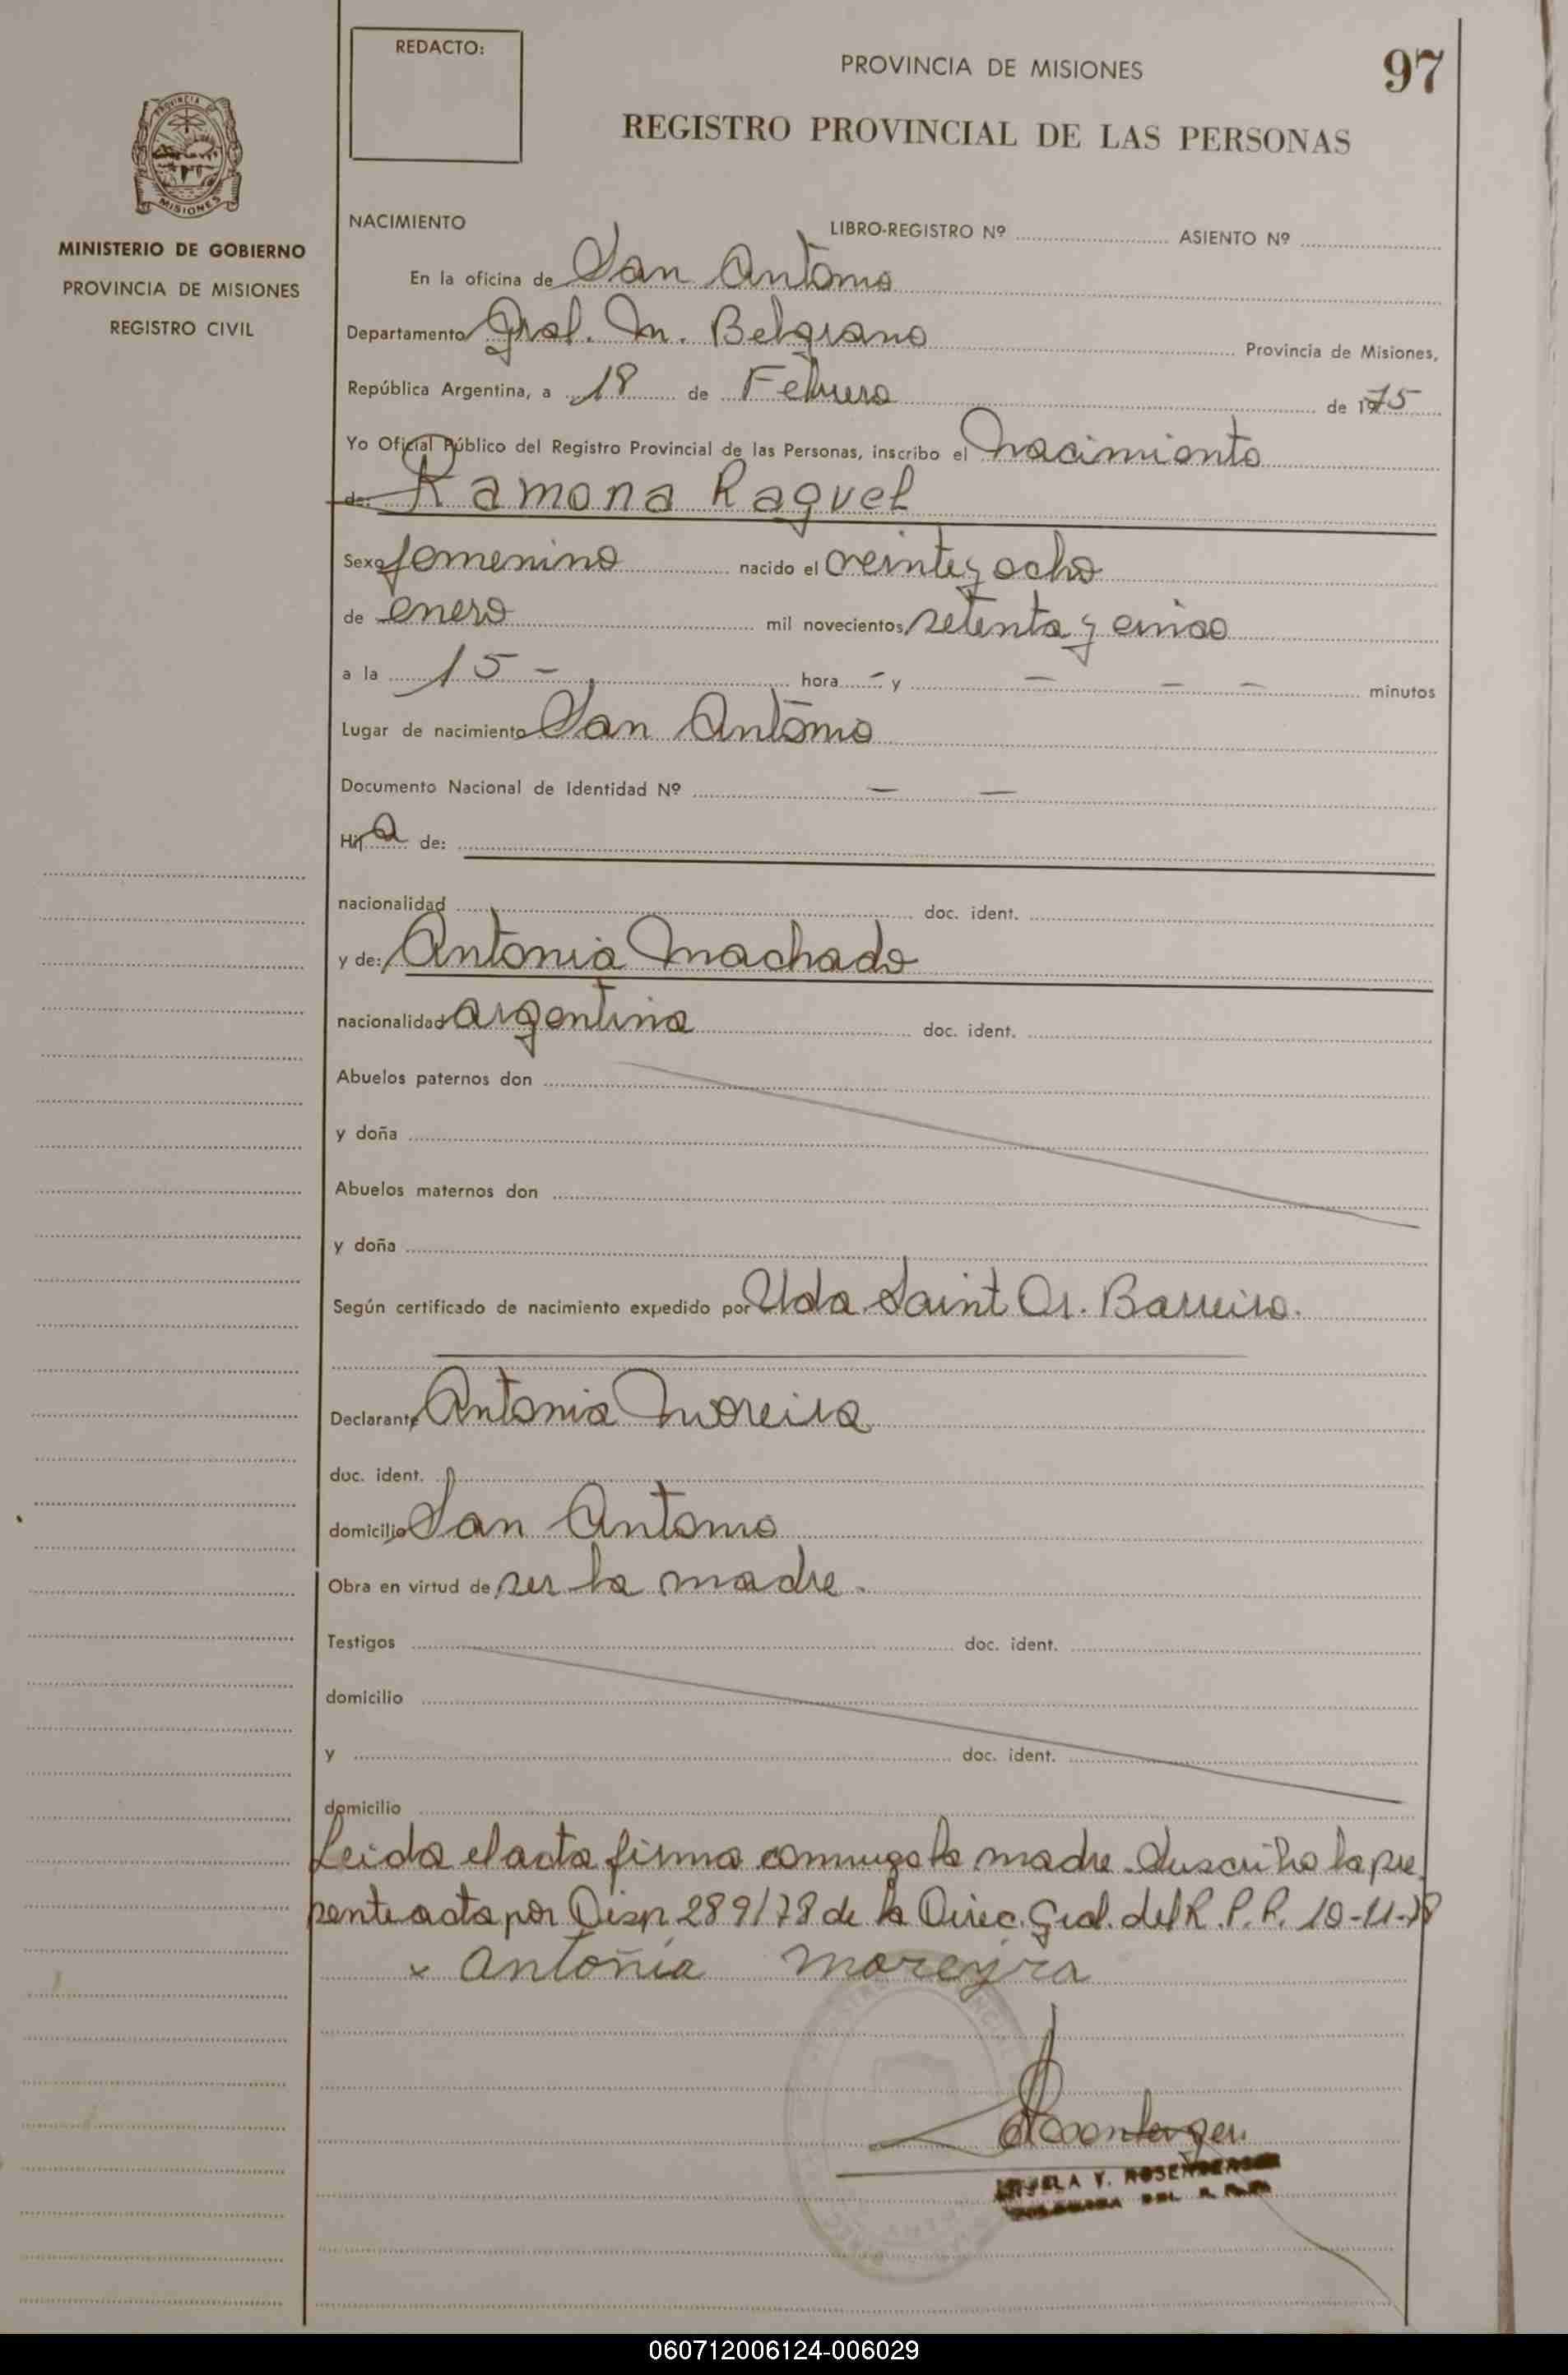 REDACTO:
PROVINCIA DE MISIONES
97
REGISTRO PROVINCIAL DE LAS PERSONAS
PROVINCIA DE
MISIONES
MINISTERIO DE GOBIERNO
PROVINCIA DE MISIONES
REGISTRO CIVIL
NACIMIENTO LIBRO-REGISTRO Nº ASIENTO Nº
En la oficina de San Antonio
Departamento Gral. M. Belgrano Provincia de Misiones,
República Argentina, a 18 de Febrero de 1975
Yo Oficial Público del Registro Provincial de las Personas, inscribo el Nacimiento
de: Ramona Raquel
Sexo femenino nacido el veinte y ocho
de enero mil novecientos setenta y cinco
a la 15 - hora - y - - - minutos
Lugar de nacimiento San Antonio
Documento Nacional de Identidad Nº - -
Hija de:
nacionalidad doc. ident.
y de: Antonia Machado
nacionalidad argentina doc. ident.
Abuelos paternos don
y doña
Abuelos maternos don
y doña
Según certificado de nacimiento expedido por Uda. Saint Or. Barreiro.
Declarante Antonia Moreira
doc. ident.
domicilio San Antonio
Obra en virtud de ser la madre.
Testigos doc. ident.
domicilio
y doc. ident.
domicilio
Leida el acta firma conmigo la madre. Suscribo la pre
sente acta por Disp. 289/78 de la Direc. Gral. del R.P.P. 10-11-78
x Antoñia moreyra
Y. ROSENBERGER
DEL R.
060712006124-006029